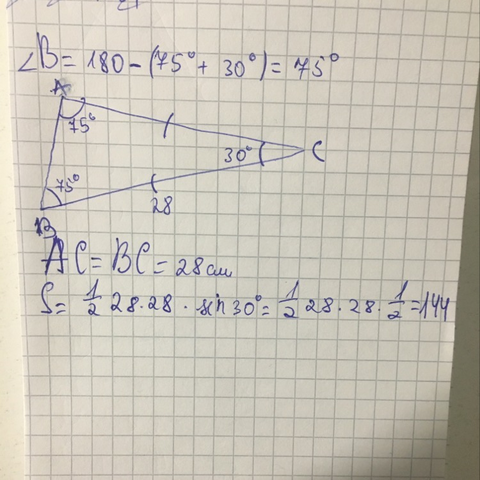 ∠B = 180 - (75° + 30°) = 75°
A
75°
30°
C
75°
28
B
AC = BC = 28 см
S = 1/2 28 · 28 · sin 30° = 1/2 28 · 28 · 1/2 = 144